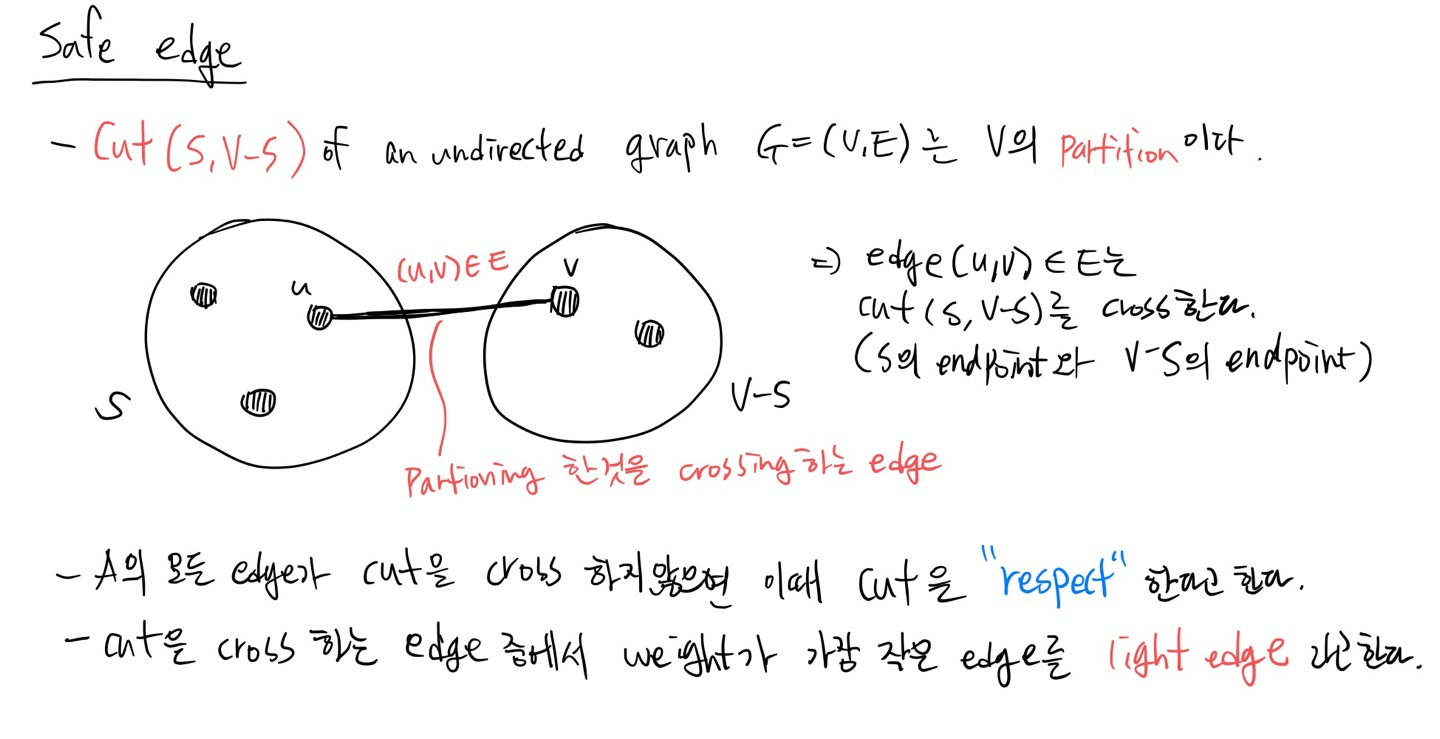 Safe edge
- Cut(S, V-S) of an undirected graph G=(V,E)는 V의 partition이다.
(u,v)∈E
u
v
S
V-S
⇒ edge(u,v)∈E는
cut(S, V-S)를 cross한다.
(S의 endpoint와 V-S의 endpoint)
Partioning 한것을 crossing하는 edge
- A의 모든 edge가 cut을 cross 하지않으면 이때 cut을 "respect" 한다고 한다.
- cut을 cross 하는 edge 중에서 weight가 가장 작은 edge를 light edge 라고한다.